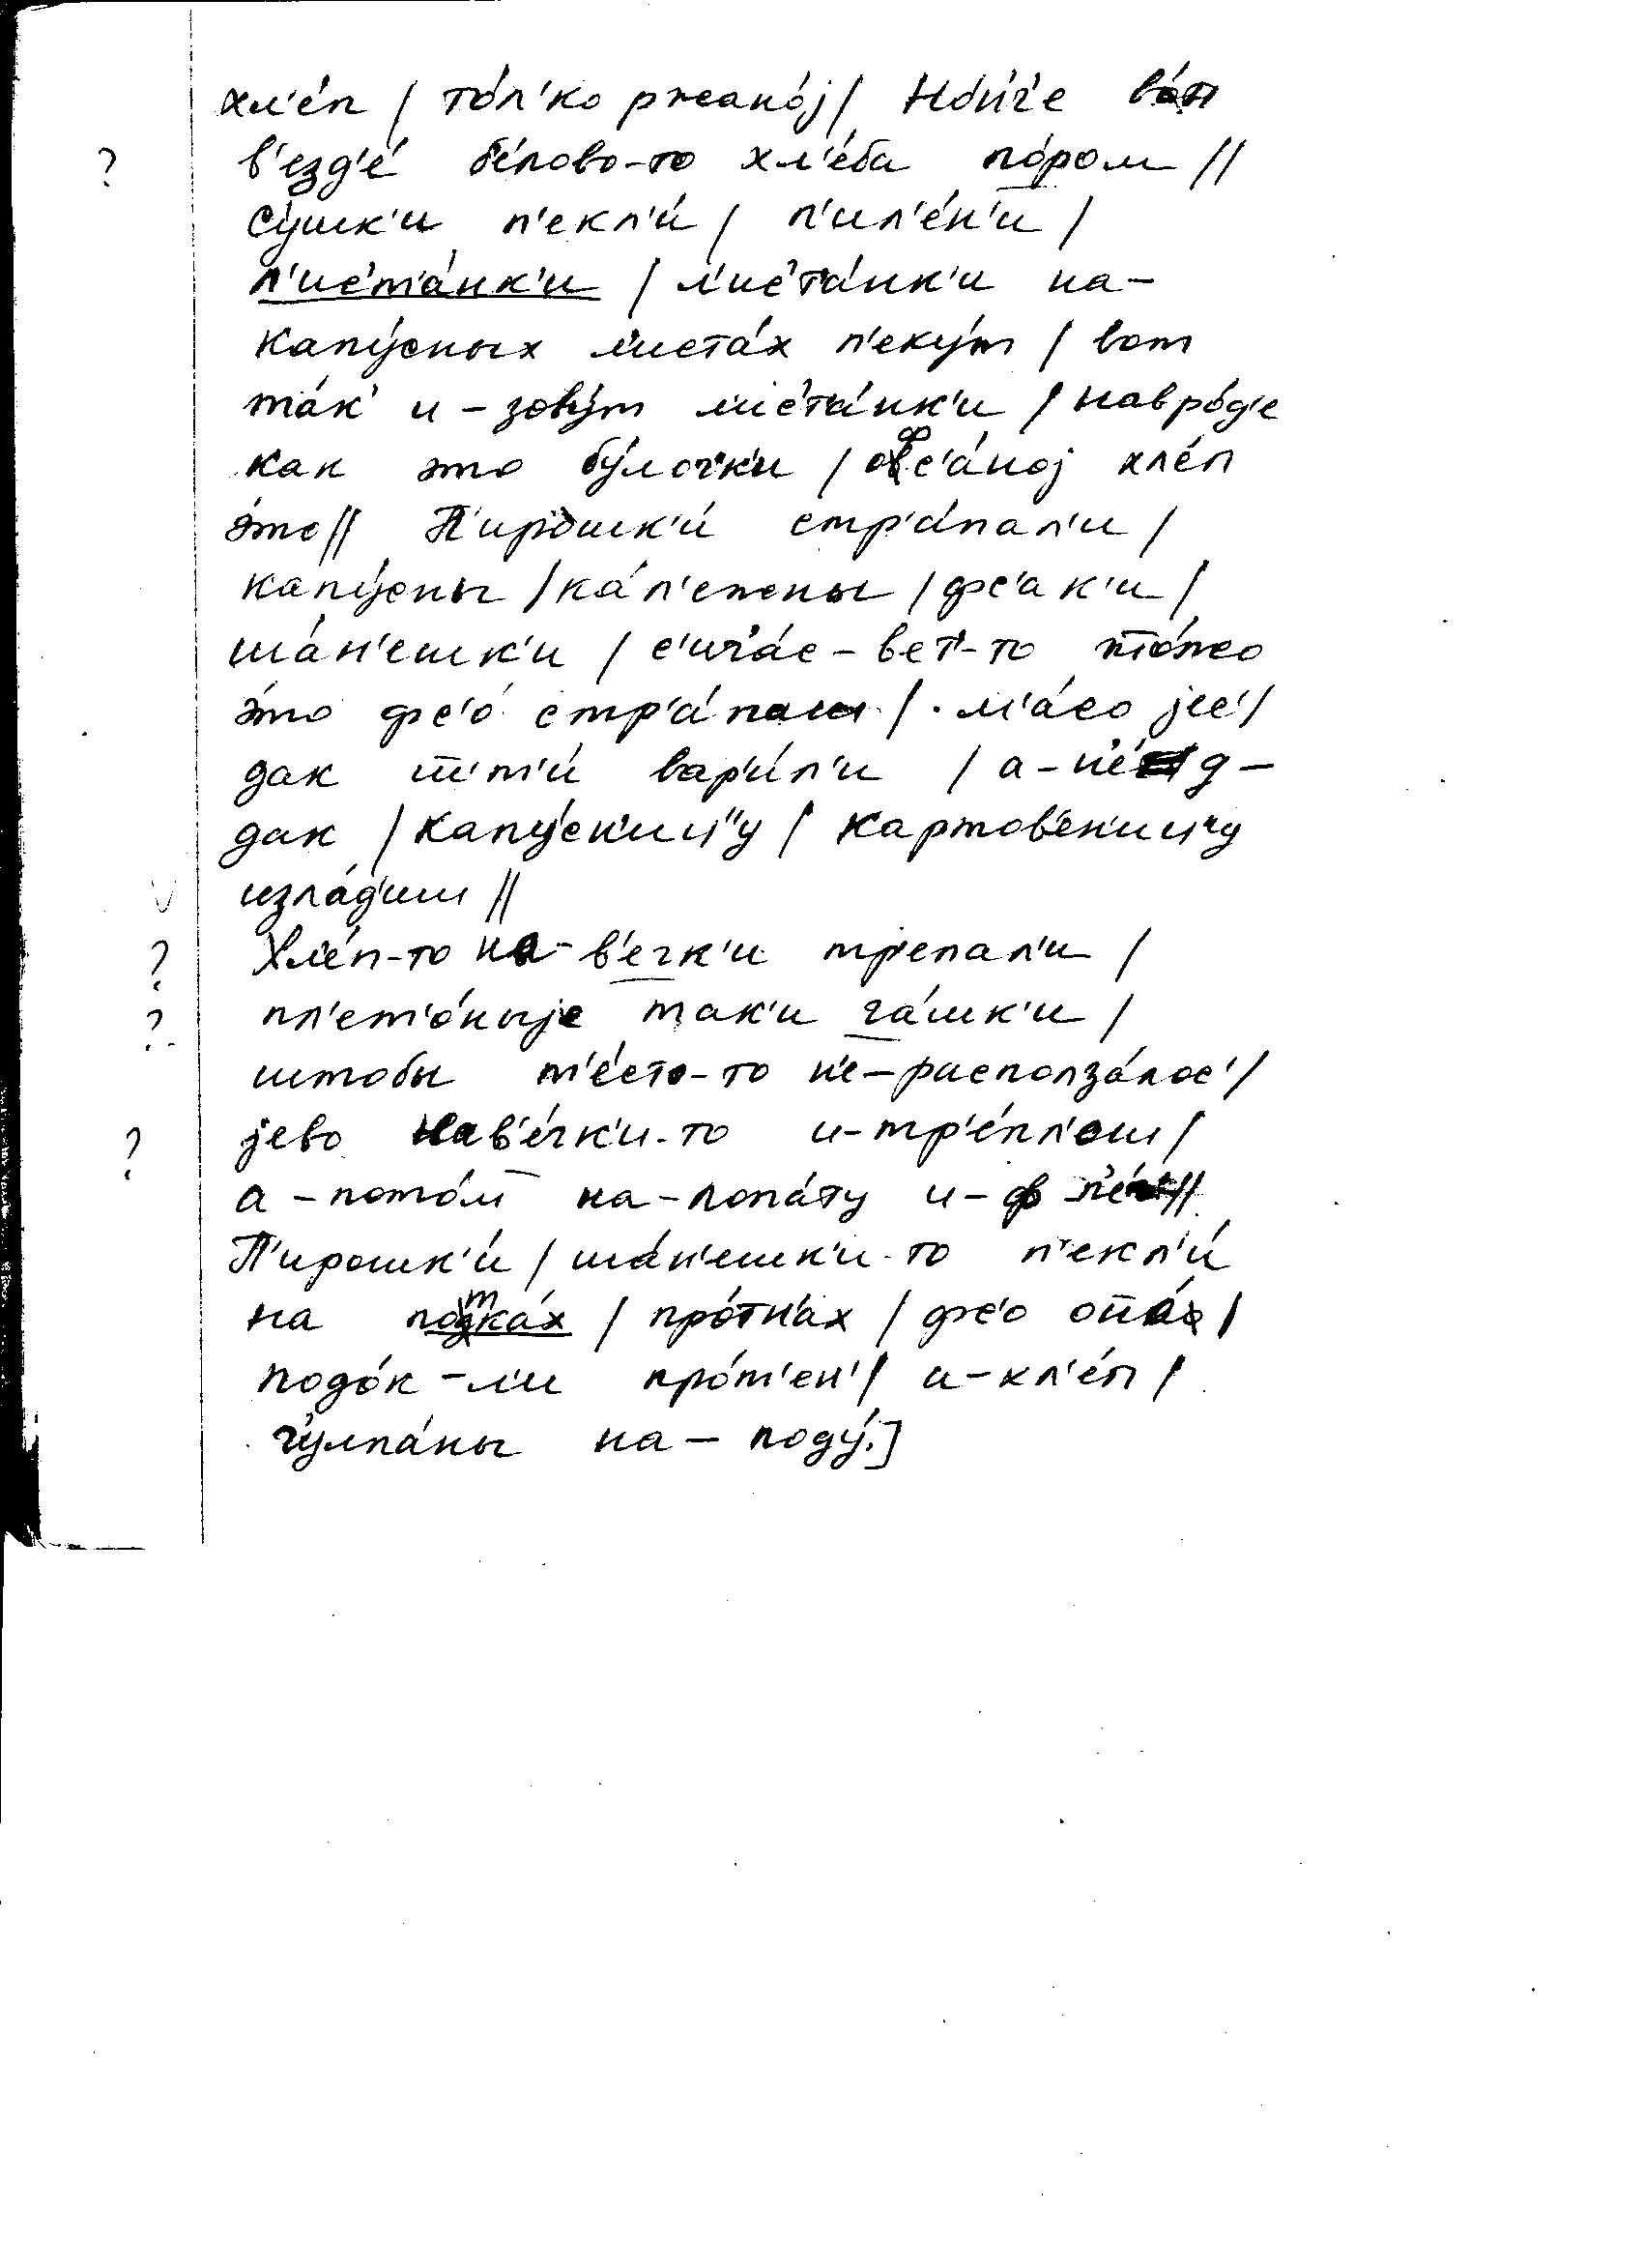 хл'е́п / то́л'ко ржано́j / Но́н'ч'е во́т
? в'езд'е́ б'е́лово-то хл'е́ба по́ром //
Су́шк'и п'екл'и́ / п'ил'е́н'и /
л'ис'т'а́нк'и / л'ис'т'а́нк'и на-
капу́сных л'иста́х п'еку́т / вот
та́к и-зову́т л'ис'т'а́нк'и / навро́д'е
как это бу́лоч'к'и / офс'а́ноj хл'е́п
э́то // П'ирошк'и́ стр'а́пал'и /
капу́сны / ка́л'ежны / фс'ак'и /
ша́н'ешк'и / с'ича́с-вет'-то то́жо
э́то фс'о́ стр'а́паш / м'а́со jес' /
дак шт'и́ вар'и́л'и / а-н'е́д-
дак / капу́с'к'ицу / картов'енкицу
изла́д'иш //
? Хл'е́п-то на-в'ечк'и тр'епал'и /
? пл'ет'о́ныjе так'и ча́шк'и /
штобы т'е́сто-то н'е-располза́лос' /
? jево нав'е́чк'и-то и-тр'е́пл'ош /
а-пото́м на-лопа́ту и-ф п'е́ч' //
П'ирошк'и́ / ша́н'ешк'и-то п'екл'и́
на потка́х / про́тн'ах / фс'о
подо́к-ли про́т'ен' / и-хл'е́п /
ч'улпа́ны на-поду́.]